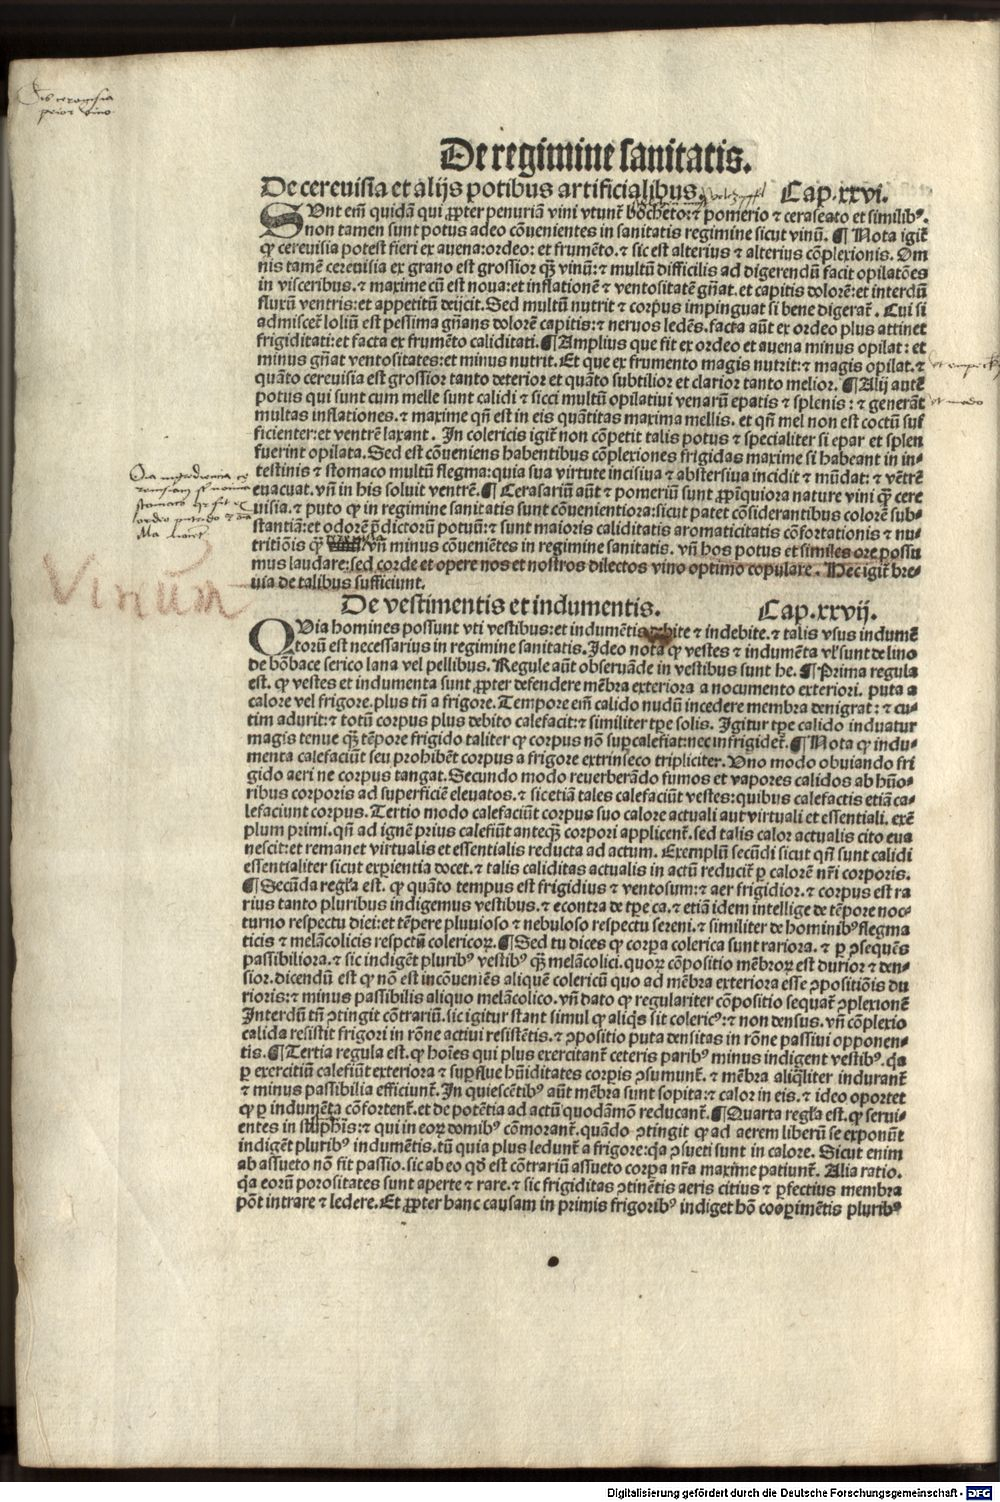 De regimine sanitatis.
De cereuisia et alijs potibus artificialibus. Cap. xxvi.
SVnt em̃ quidã qui ꝓpter penuriam vini vtunt᷑ bochetor: ⁊ pomerio ⁊ ceraseato et similibꝰ.
non tamen sunt potus adeo cõuenientes in sanitatis regimine sicut vinũ. ¶ Nota igit᷑
ꝙ cereuisia potest fieri ex auena: ordeo: et frumẽto. ⁊ sic est alterius ⁊ alterius cõplexionis. Om
nis tamẽ cereuisia ex grano est grossior q̃ȝ vinũ: ⁊ multũ difficilis ad digerendũ facit opilatões
in visceribus. ⁊ maxime cũ est noua: et inflationẽ ⁊ ventositatẽ gñat. et capitis dolorẽ: et interdũ
fluxũ ventris: et appetitũ deijcit. Sed multũ nutrit ⁊ corpus impinguat si bene digerat᷑. Cui si
admiscet᷑ loliũ est pessima gñans dolorẽ capitis: ⁊ neruos ledẽs. facta aũt ex ordeo plus attinet
frigiditati: et facta ex frumẽto caliditati. ¶ Amplius que fit ex ordeo et auena minus opilat: et
minus gñat ventositates: et minus nutrit. Et que ex frumento magis nutrit: ⁊ magis opilat. ⁊
quãto cereuisia est grossior tanto deterior et quãto subtilior et clarior tanto melior. ¶ Alij autẽ
potus qui sunt cum melle sunt calidi ⁊ sicci multũ opilatiui venarũ epatis ⁊ splenis: ⁊ generãt
multas inflationes. ⁊ maxime qñ est in eis quãtitas maxima mellis. et qñ mel non est coctũ suf
ficienter: et ventrẽ laxant. In colericis igit᷑ non cõpetit talis potus ⁊ specialiter si epar et splen
fuerint opilata. Sed est cõueniens habentibus cõplexiones frigidas maxime si habeant in in-
testinis ⁊ stomaco multũ flegma: quia sua virtute incisiua ⁊ abstersiua incidit ⁊ mũdat: ⁊ vẽtrẽ
euacuat. vñ in his soluit ventrẽ. ¶ Cerasariũ aũt ⁊ pomeriũ sunt ꝓp̃inquiora nature vini q̃ȝ cere
uisia. ⁊ puto ꝙ in regimine sanitatis sunt cõuenientiora: sicut patet cõsiderantibus colorẽ sub-
stantiã: et odorẽ p̃dictorũ potuũ: ⁊ sunt maioris caliditatis aromaticitatis cõfortationis ⁊ nu-
tritiõis q̃ȝ vñ minus cõueniẽtes in regimine sanitatis. vñ hos potus et similes ore possu
mus laudare: sed corde et opere nos et nostros dilectos vino optimo copulare. Hec igit᷑ bre-
uia de talibus sufficiunt.
Vinum
De vestimentis et indumentis. Cap. xxvij.
QVia homines possunt vti vestibus: et indumẽtis debite ⁊ indebite. ⁊ talis vsus indumẽ
torũ est necessarius in regimine sanitatis. Ideo nota ꝙ vestes ⁊ indumẽta vl᷑ sunt de lino
de bõbace serico lana vel pellibus. Regule aũt obseruãde in vestibus sunt he. ¶ Prima regula
est. ꝙ vestes et indumenta sunt ꝓpter defendere mẽbra exteriora a nocumento exteriori. puta a
calore vel frigore. plus tñ a frigore. Tempore em̃ calido nudũ incedere membra denigrat: ⁊ cu-
tim adurit: ⁊ totũ corpus plus debito calefacit: ⁊ similiter tp̃e solis. Igitur tp̃e calido induatur
magis tenue q̃ȝ tẽpore frigido taliter ꝙ corpus nõ suꝑcalefiat: nec infrigidet᷑. ¶ Nota ꝙ indu-
menta calefaciũt seu prohibẽt corpus a frigore extrinseco tripliciter. Vno modo obuiando fri
gido aeri ne corpus tangat. Secundo modo reuerberãdo fumos et vapores calidos ab hũo-
ribus corporis ad superficiẽ eleuatos. ⁊ sic etiã tales calefaciũt vestes: quibus calefactis etiã ca-
lefaciunt corpus. Tertio modo calefaciũt corpus suo calore actuali aut virtuali et essentiali. exẽ
plum primi. qñ ad ignẽ prius calefiũt anteq̃ȝ corpori applicent᷑. sed talis calor actualis cito eua
nescit: et remanet virtualis et essentialis reducta ad actum. Exemplũ secũdi sicut qñ sunt calidi
essentialiter sicut exꝑientia docet. ⁊ talis caliditas actualis in actũ reducit᷑ ꝑ calorẽ nr̃i corporis.
¶ Secũda regl᷑a est. ꝙ quãto tempus est frigidius ⁊ ventosum: ⁊ aer frigidior. ⁊ corpus est ra
rius tanto pluribus indigemus vestibus. ⁊ econtra de tp̃e ca. ⁊ etiã idem intellige de tẽpore noc-
turno respectu diei: et tẽpere pluuioso ⁊ nebuloso respectu sereni. ⁊ similiter de hominibꝰ flegma
ticis ⁊ melãcolicis respctũ colericoꝝ. ¶ Sed tu dices ꝙ corpa colerica sunt rariora. ⁊ ꝑ ꝯsequẽs
passibiliora. ⁊ sic indigẽt pluribꝰ vestibꝰ q̃ȝ melãcolici. quoꝝ cõpositio mẽbroꝝ est durior ⁊ den-
sior. dicendũ est ꝙ nõ est incõueniẽs aliquẽ colericũ quo ad mẽbra exteriora esse ꝯpositiõis du
rioris: ⁊ minus passibilis aliquo melãcolico. vñ dato ꝙ regulariter cõpositio sequat᷑ ꝯplexionẽ
Interdũ tñ ꝯtingit cõtrariũ. sic igitur stant simul ꝙ aliq̃s sit colericꝰ: ⁊ non densus. vñ cõplexio
calida resistit frigori in rõne actiui resistẽtis. ⁊ ꝯpositio puta densitas in rõne passiui opponen-
tis. ¶ Tertia regula est. ꝙ hoĩes qui plus exercitant᷑ ceteris paribꝰ minus indigent vestibꝰ. q̃a
ꝑ exercitiũ calefiũt exteriora ⁊ suꝑflue hũiditates corꝑis ꝯsumunt᷑. ⁊ mẽbra aliq̃liter indurant᷑
⁊ minus passibilia efficiunt᷑. In quiescẽtibꝰ aũt mẽbra sunt sopita: ⁊ calor in eis. ⁊ ideo oportet
ꝙ ꝑ indumẽta cõfortent᷑. et de potẽtia ad actũ quodãmõ reducant᷑. ¶ Quarta regl᷑a est. ꝙ serui-
entes in stuphis: ⁊ qui in eoꝝ domibꝰ cõmorant᷑. quãdo ꝯtingit ꝙ ad aerem liberũ se exponũt
indigẽt pluribꝰ indumẽtis. tũ quia plus ledunt᷑ a frigore: q̃a ꝯsueti sunt in calore. Sicut enim
ab assueto nõ fit passio. sic ab eo qð est cõtrariũ assueto corpa nr̃a maxime patiunt᷑. Alia ratio.
q̃a eorũ porositates sunt aperte ⁊ rare. ⁊ sic frigiditas ꝯtinẽtis aeris citius ⁊ ꝑfectius membra
põt intrare ⁊ ledere. Et ꝓpter hanc causam in primis frigoribꝰ indiget hõ cooꝑimẽtis pluribꝰ
Digitalisierung gefördert durch die Deutsche Forschungsgemeinschaft - DFG